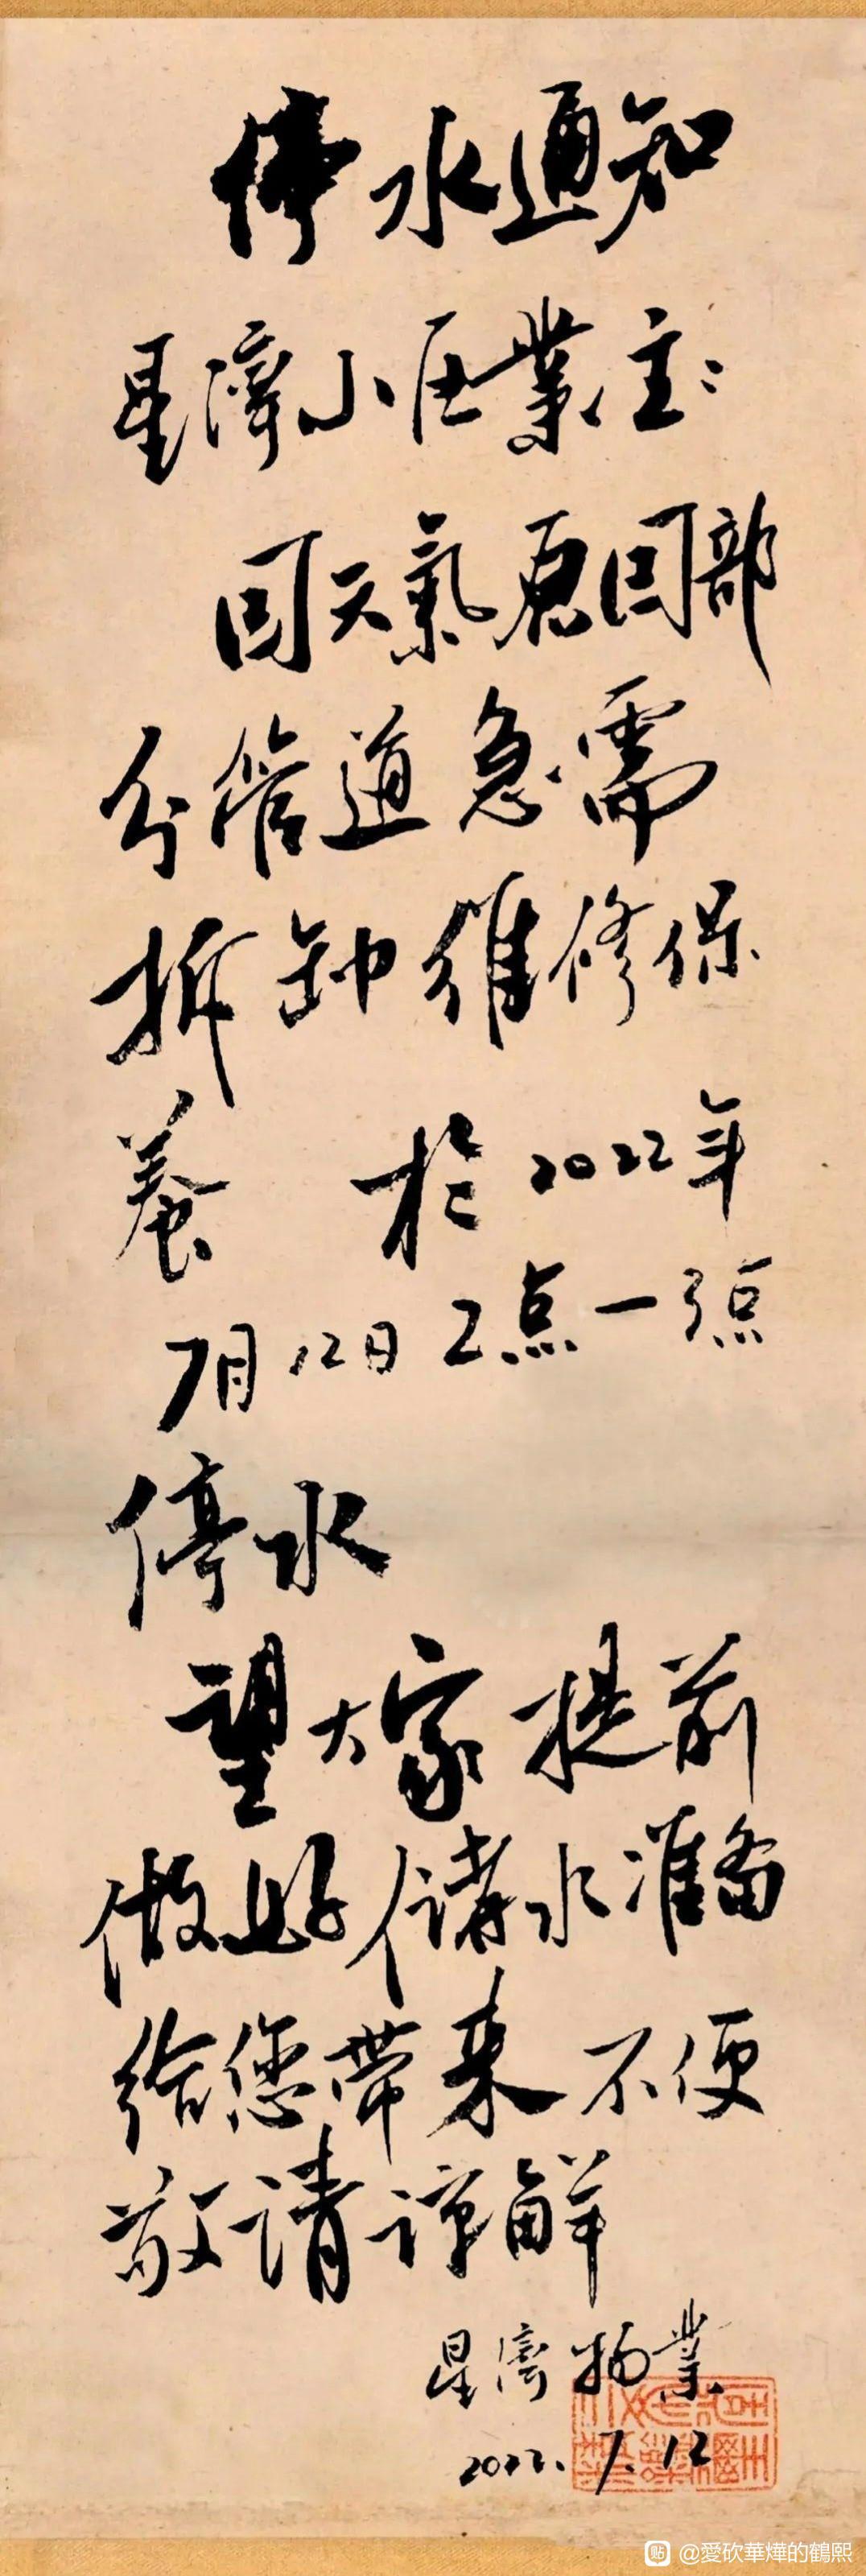 停水通知
星濟小区業主:
因天氣原因部
分管道急需
拆卸維修保
養 於2022年
7月12日2点一3点
停水
望大家提前
做好储水准备
给您带来不便
敬请谅解
星濟物業
2022.7.12
貼 @愛砍華燁的鶴熙